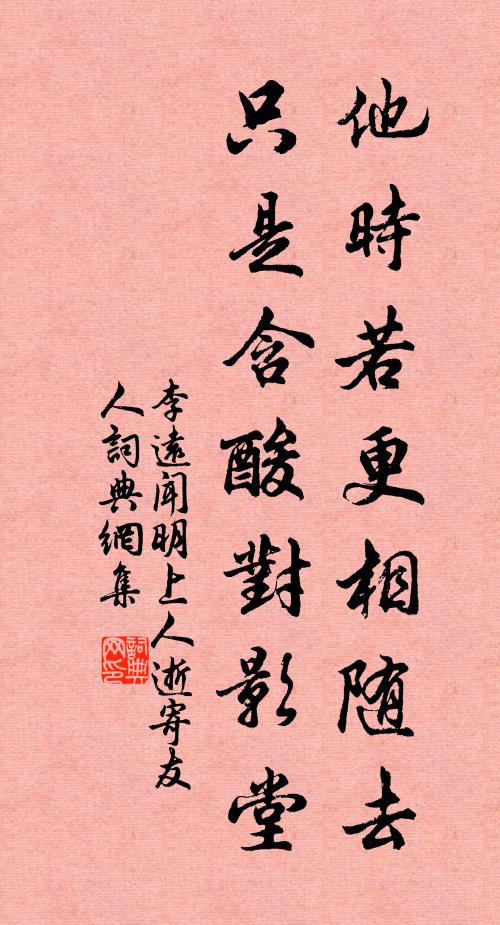 他時若更相随去
只是含酸對影堂
李遠聞明上人逝寄友
人詞典網集
詞典
网印